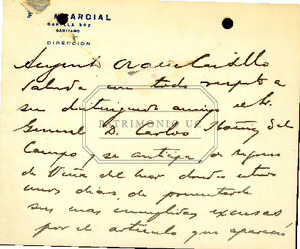 DIRECCION
Saluda con todo respeto a
su distinguido amigo el Sr.
General D. Carlos Ibáñez del
Campo y se anticipa, de regreso
de Viña del Mar donde estuvo
unos días, de presentarle
sus mas cumplidas excusas
por el artículo que apareció
PATRIMONIO UC